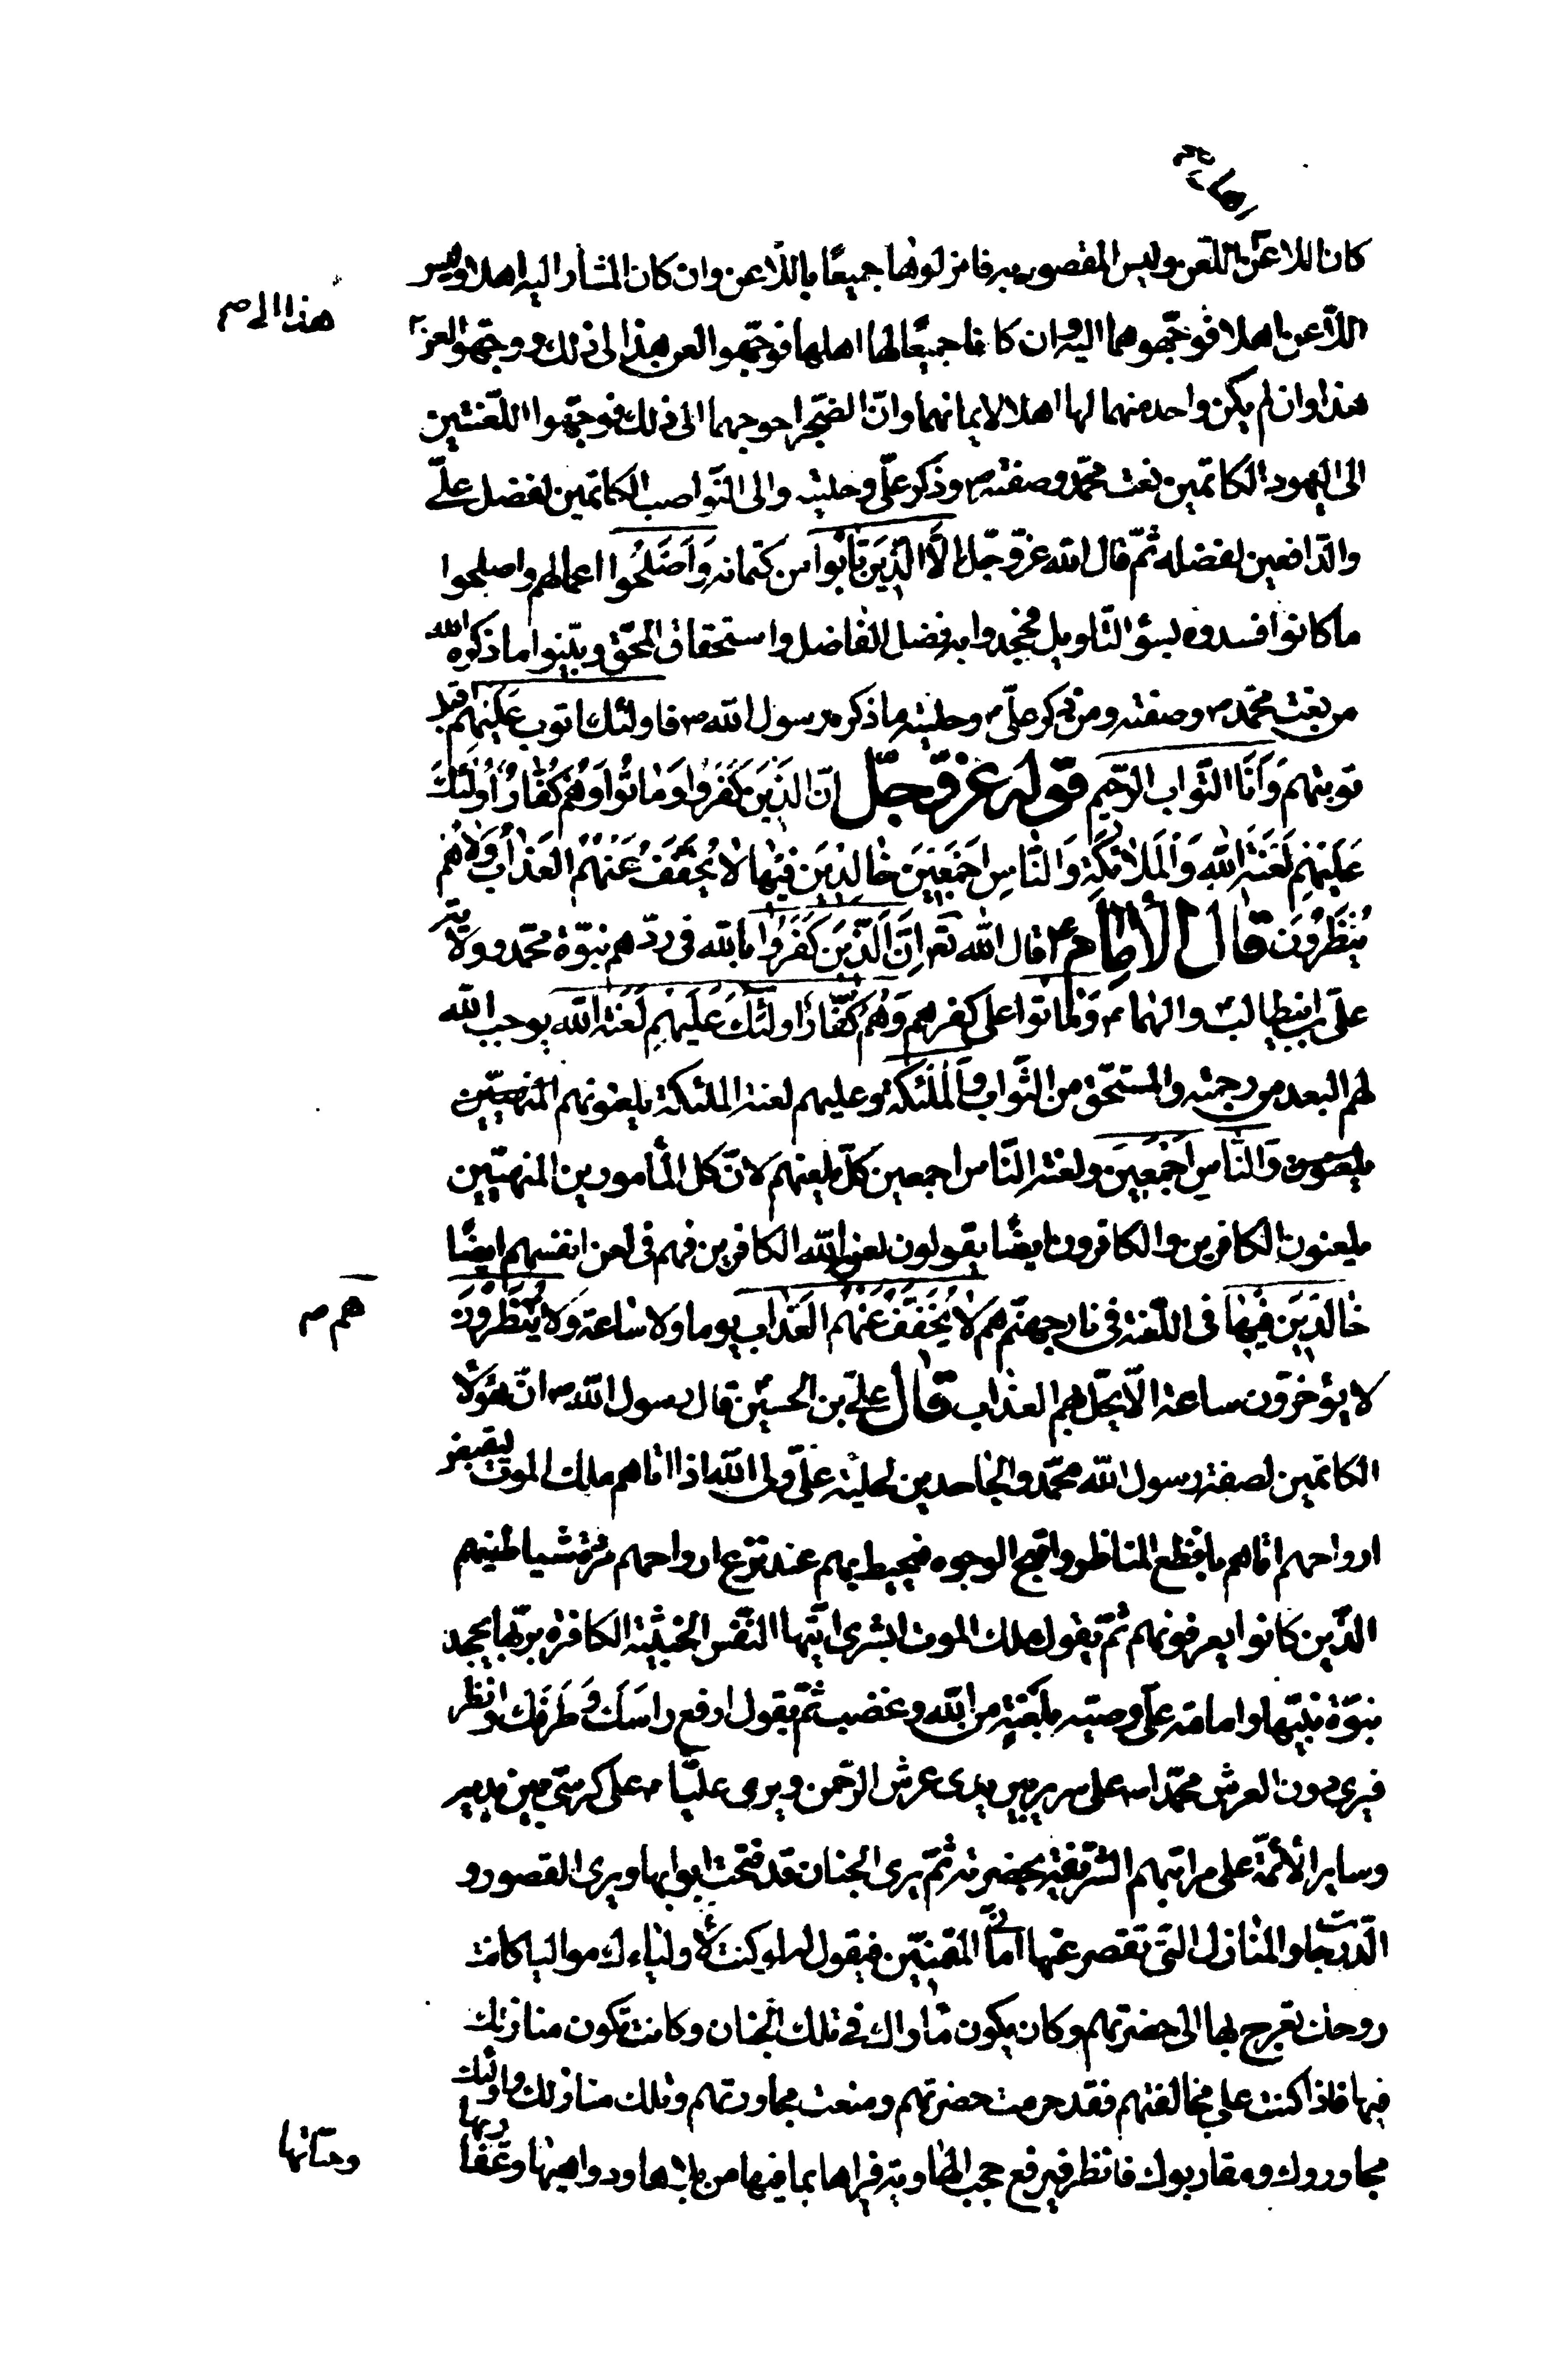 كان اللاعن للّعن وليس المقصود به فانزلوها جميعًا باللّاعن وان كان المشار اليه اهلا وليس
هذا الى ص
اللّاعن اهلا فوجّهوهما اليه وان كانا جميعًا لها اهلا فوجّهوا لعن هذا الى ذلك ووجّهوا لعن
هذا وان لم يكن واحد منهما لها اهلا لايمانهما وانّ الضّجر احوجهما الى ذلك فوجّهوا اللّعنتين
الى اليهود الكاتمين نعت محمّد وصفته ص وذكر علىّ وحليته والى النّواصب الكاتمين لفضل علىّ
والدّافعين لفضله ثمّ قال الله عزّ وجلّ اِلَّا الَّذِيَنَ تَابُوا من كتمانه وَاَصَلَحُوا اعمالهم واصلحوا
ما كانوا افسدوه بسوء التّاويل فجحدوا به فضل الفاضل واستحقاق المحقّ وبيّنوا ما ذكره الله
من نعت محمّد ص وصفته ومن ذكر علىّ ع وحليته ما ذكره رسول الله ص فاولئك اتوب عَلَيْهِم اقبل
توبتهم وَاَنَا التَّوّاب الرّحيم قوله عزّ وجلّ انّ الَذيَن كَفَرُوا وَمَاتُوا وَهُمْ كُفّارٌ اُولئِكَ
عَلَيْهِم لَعْنَةُ اللهِ وَالْمَلائِكَةِ وَالنَّاسِ اَجْمَعِيَن خالِدِيَن فيها لا يُخَفَّفُ عَنْهُمُ العَذابُ وَلا هُمْ
يُنْظَرُون قال الأمام ع قال الله تعَ اِنَّ الَّذيَن كَفَرُوا بالله فى ردّهم نبوّة محمّد وولاية
علىّ بن ابيطالب والهما ع وَماتوا على كفرهم وَهُم كُفّارٌ اولئِكَ عَلَيهِم لَعْنَةُ الله يوجب الله
لهم البعد من رحمته والسّحق من الثّواب وَالْمَلئِكَة وعليهم لعنة الملئكة يلعنونهم
وَالنَّاسِ اَجْمَعِيَن ولعنة النّاس اجمعين كلّ يلعنهم لانّ كل المأمورين المنهيّين
يلعنون الكافرين والكافرون ايضًا يقولون لعن الله الكافرين فهم فى لعن انفسهم ايضًا
هم ص
خالديَن فيها فى اللّعنة فى نار جهنّم هم لا يُخَفَّفُ عَنْهُم العَذاب يوما ولا ساعة وَلا يُنْظَرُون
لا يؤخّرون ساعة الّا يحلّ بهم العذاب قال علىّ بن الحسين قال رسول الله ص انّ هؤلاء
الكاتمين لصفة رسول الله محمّد والجاحدين لحلية علىّ ولى الله اذا اتاهم ملك الموت ليقبض
ارواحهم اتاهم بافظع المناظر واقبح الوجوه فيحيط بهم عند نزع ارواحهم مردة شياطينهم
الّذين كانوا يعرفونهم ثمّ يقول ملك الموت ابشرى ايّتها النّفس الخبيثة الكافرة بربّها بجحد
نبوّة نبيّها وامامة علىّ وصيّه بلَعنة من الله وغضب ثمّ يقول ارفع راسَك وَطرفك وانظر
فيرى دون العرش محمّدا ص على سرير بين يدى عرش الرّحمن ويرى عليّا ع على كرسىّ بين يديه
وساير الأئمّة على مراتبهم الشّريفة بحضرته ثمّ يرى الجنان قد فتحت ابوابها ويرى القصور و
الدّرجات والمنازل التى تقصر عنها امانى المتمنّين فيقول له لو كنت لأولياءك مواليا كانت
روحك تعرج بها الى حضرتهم وكان يكون مأواك فى تلك الجنان وكانت تكون منازلك
فيها فاذا كنت على مخالفتهم فقد حرمت حضرتهم ومنعت مجاورتهم وتلك منازلك واولئك
مجاوروك ومقاربوك فانظر فيرفع حجب الهاوية فيراها بما فيها من بلاياها ودواهيها وعقاربها
وحيّاتها